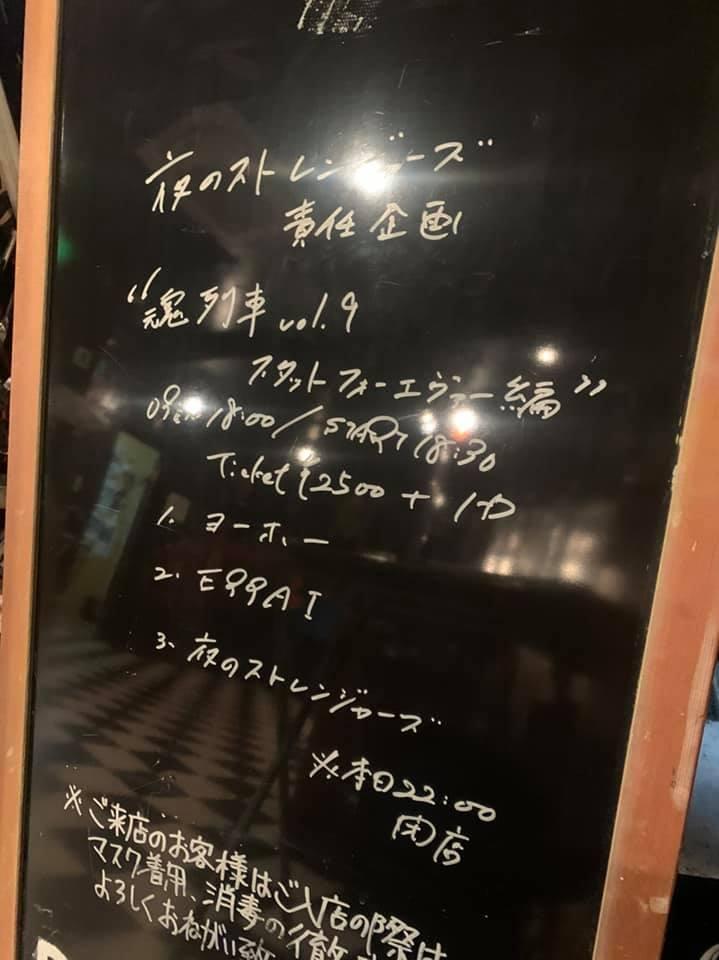 夜のストレンジャーズ
責任企画
“魂列車 vol.9
スタットフォーエヴァー編”
OPEN 18:00 / START 18:30
Ticket ¥2500 + 1D
1. ヨーホー
2. ERRAI
3. 夜のストレンジャーズ
※本日22:00
閉店
※ご来店のお客様はご入店の際は
マスク着用、消毒の徹
よろしくおねがい致